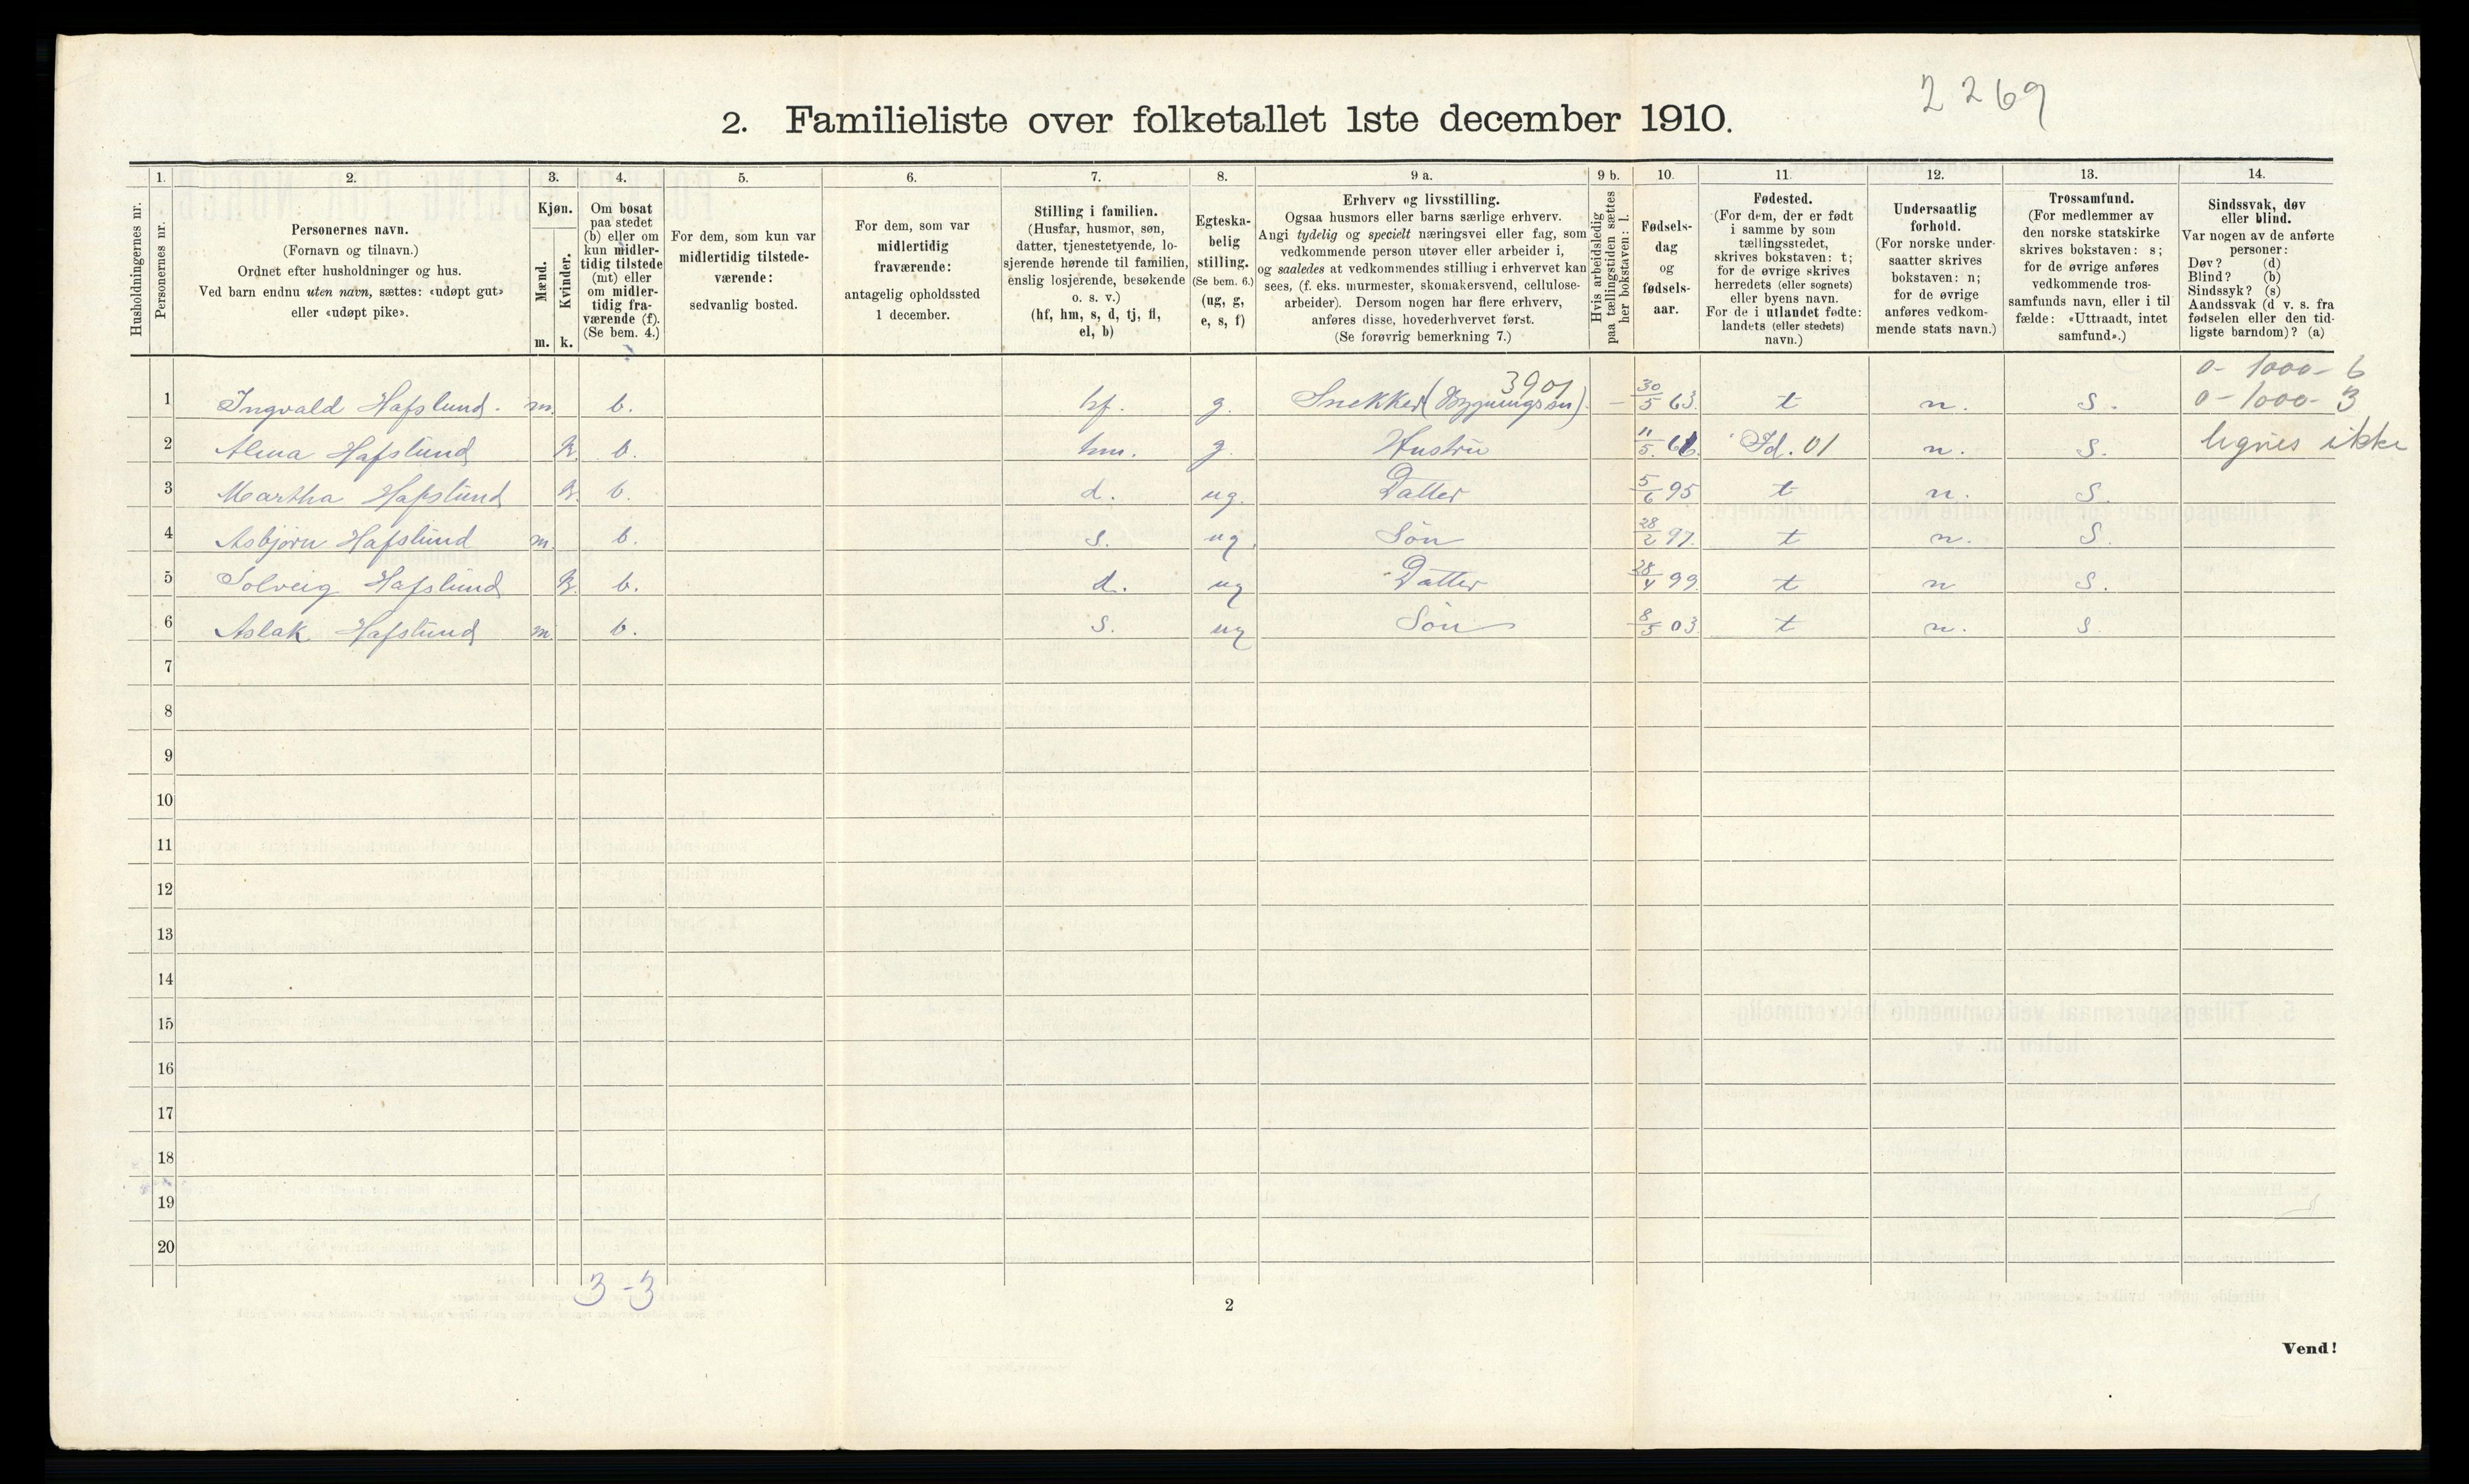 2269
2. Familieliste over folketallet 1ste december 1910.
1. 2. 3. 4. 5. 6. 7. 8. 9 a. 9 b. 10. 11. 12. 13. 14.
Husholdningernes nr.
Personernes nr.
Personernes navn.
(Fornavn og tilnavn.)
Ordnet efter husholdninger og hus.
Ved barn endnu uten navn, sættes: «udøpt gut»
eller «udøpt pike».
Kjøn.
Mænd.
Kvinder.
m. k.
Om bosat
paa stedet
(b) eller om
kun midler-
tidig tilstede
(mt) eller
om midler-
tidig fra-
værende (f).
(Se bem. 4.)
For dem, som kun var
midlertidig tilstede-
værende:
sedvanlig bosted.
For dem, som var
midlertidig
fraværende:
antagelig opholdssted
1 december.
Stilling i familien.
(Husfar, husmor, søn,
datter, tjenestetyende, lo-
sjerende hørende til familien,
enslig losjerende, besøkende
o. s. v.)
(hf, hm, s, d, tj, fl,
el, b)
Egteska-
belig
stilling.
(Se bem. 6.)
(ug, g,
e, s, f)
Erhverv og livsstilling.
Ogsaa husmors eller barns særlige erhverv.
Angi tydelig og specielt næringsvei eller fag, som
vedkommende person utøver eller arbeider i,
og saaledes at vedkommendes stilling i erhvervet kan
sees, (f. eks. murmester, skomakersvend, cellulose-
arbeider). Dersom nogen har flere erhverv,
anføres disse, hovederhvervet først.
(Se forøvrig bemerkning 7.)
Hvis arbeidsledig
paa tællingstiden sættes
her bokstaven: l.
Fødsels-
dag
og
fødsels-
aar.
Fødested.
(For dem, der er født
i samme by som
tællingsstedet,
skrives bokstaven: t;
for de øvrige skrives
herredets (eller sognets)
eller byens navn.
For de i utlandet fødte:
landets (eller stedets)
navn.)
Undersaatlig
forhold.
(For norske under-
saatter skrives
bokstaven: n;
for de øvrige
anføres vedkom-
mende stats navn.)
Trossamfund.
(For medlemmer av
den norske statskirke
skrives bokstaven: s;
for de øvrige anføres
vedkommende tros-
samfunds navn, eller i til
fælde: «Uttraadt, intet
samfund».)
Sindssvak, døv
eller blind.
Var nogen av de anførte
personer:
Døv? (d)
Blind? (b)
Sindssyk? (s)
Aandssvak (d v. s. fra
fødselen eller den tid-
ligste barndom)? (a)
3901 0- 1000- 6
1 Ingvald Hafslund. m. b. hf. g. Snekker (Bygningssn). - 30/5 63. t n. s. 0-1000- 3
2 Alma Hafslund k. b. hm. g. Hustru 11/5. Id. 01 n. s. lignes ikke
3 Martha Hafslund k. b. d. ug. Datter 5/6 95 t n. s.
4 Asbjørn Hafslund m. b. s. ug. Søn 28/2 97. t n. s.
5 Solveig Hafslund k. b. d. ug Datter 28/4 99. t n s.
6 Aslak Hafslund m. b. s. ug Søn 8/5 03. t n. s.
7
8
9
10
11
12
13
14
15
16
17
18
19
20
3-3
2
Vend!